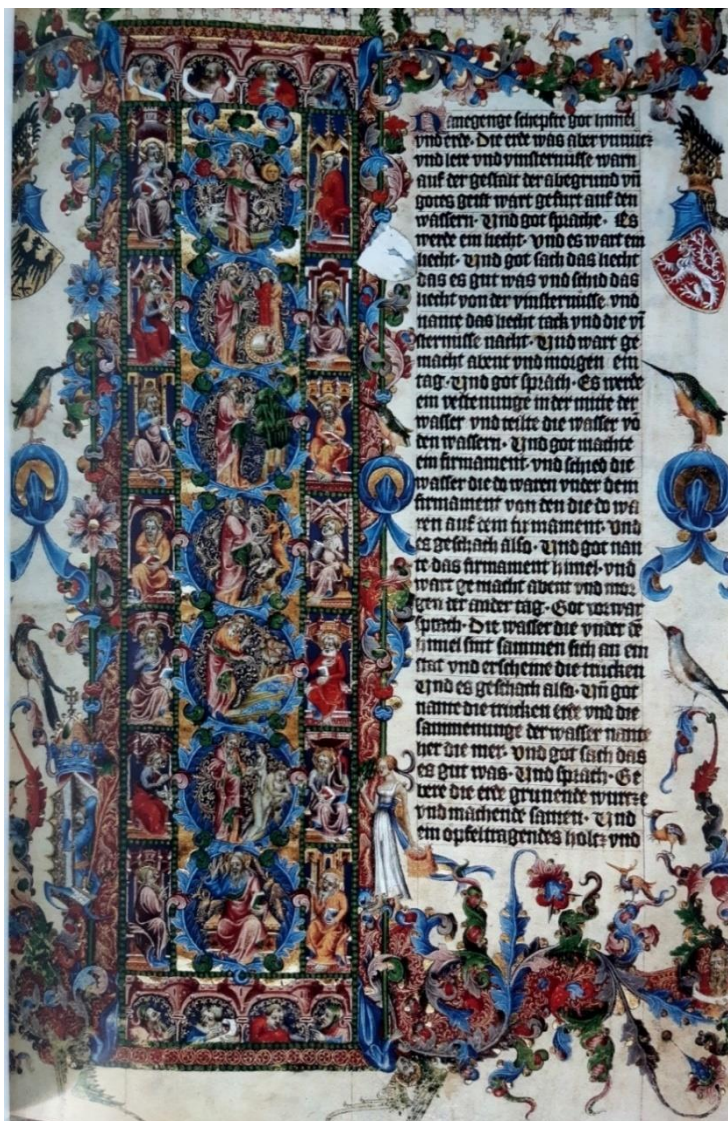 Namegenge schepfte got himel
vnd erde. Die erde was aber vnnucz
vnd lere vnd vinsternusse warn
auf der gestalt der abegrund vn̄
gotes geist wart gefurt auf den
wassern. Und got sprache. Es
werde ein liecht. vnd es wart ein
liecht. Und got sach das liecht
das es gut was vnd schid das
liecht von der vinsternusse vnd
nante das liecht tack vnd die vī
sternusse nacht. Und wart ge
macht abent vnd morgen ein
tag. Und got sprach. Es werde
ein vestenunge in der mitte der
wasser vnd teilte die wasser vō
den wassern. Und got machte
ein firmament. vnd schied die
wasser die do waren vnder dem
firmament von den die do wa
ren auf dem firmament. Und
es geschach also. Und got nan
te das firmament himel. vnd
wart gemacht abent vnd mor
gen der ander tag. Got vorwar
sprach. Die wasser die vnder dē
himel sint sammen sich an ein
stat vnd erscheine die trucken
Und es geschach also. Vn̄ got
nante die trucken erde vnd die
sammenunge der wasser nante
her die mer. vnd got sach das
es gut was. Und sprach. Ge
bere die erde grunende wurcze
vnd machende samen. Und
ein opfeltragendes holcz vnd